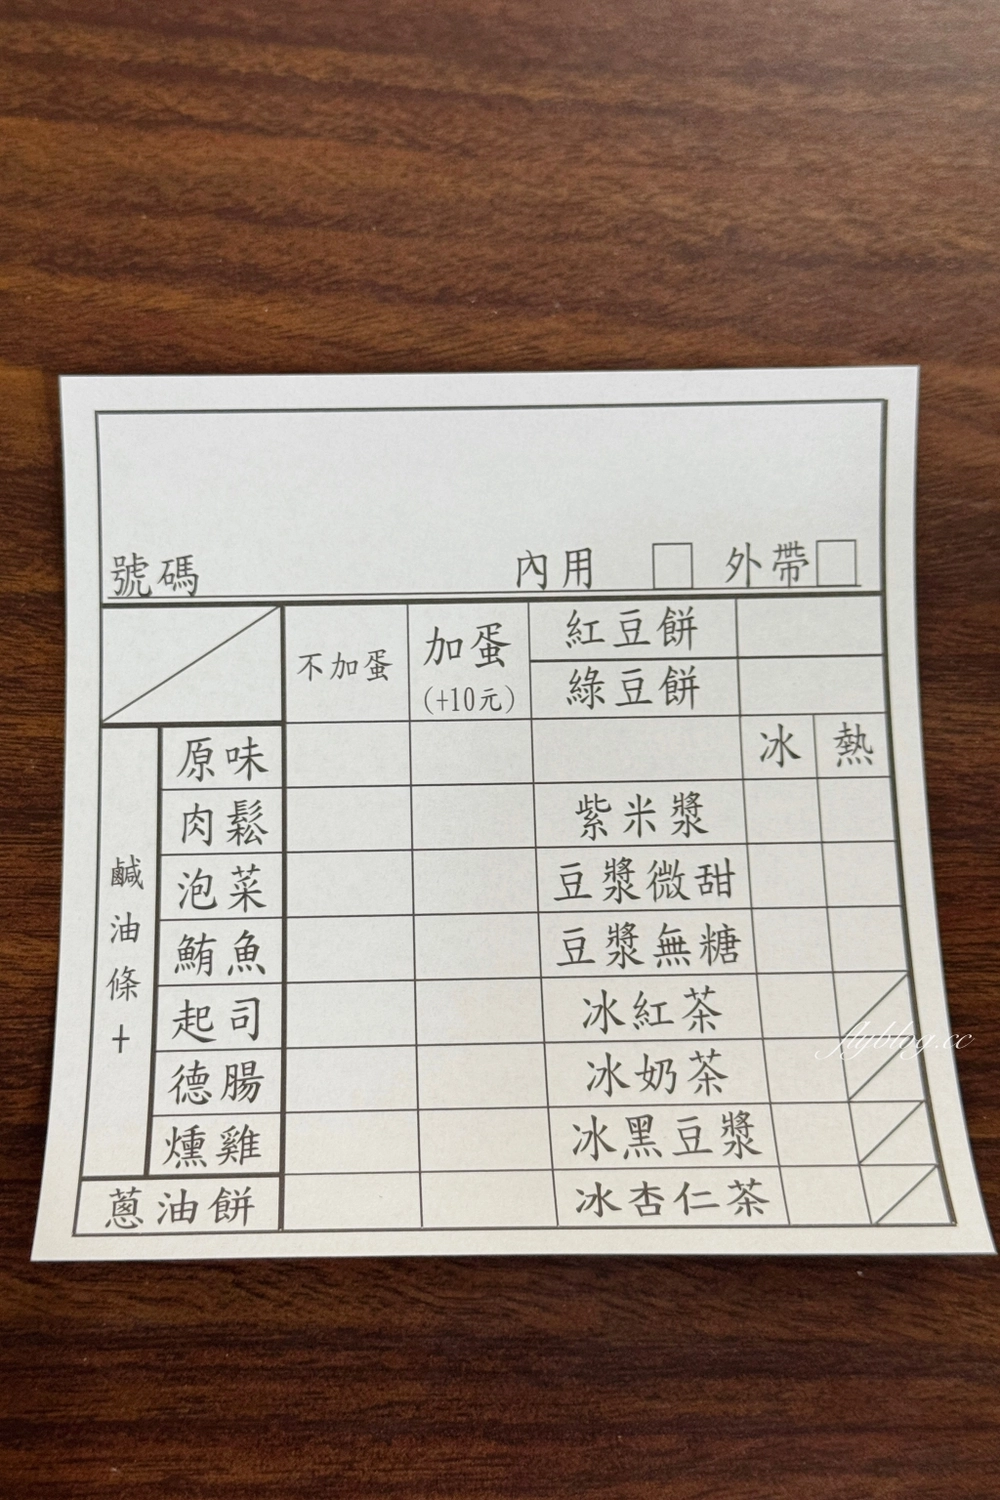 號碼 內用 外帶
不加蛋 加蛋 紅豆餅
(+10元) 綠豆餅
冰 熱
原味
肉鬆 紫米漿
泡菜 豆漿微甜
鮪魚 豆漿無糖
起司 冰紅茶
德腸 冰奶茶
燻雞 冰黑豆漿
蔥油餅 冰杏仁茶
鹹油條+
flyblog.cc